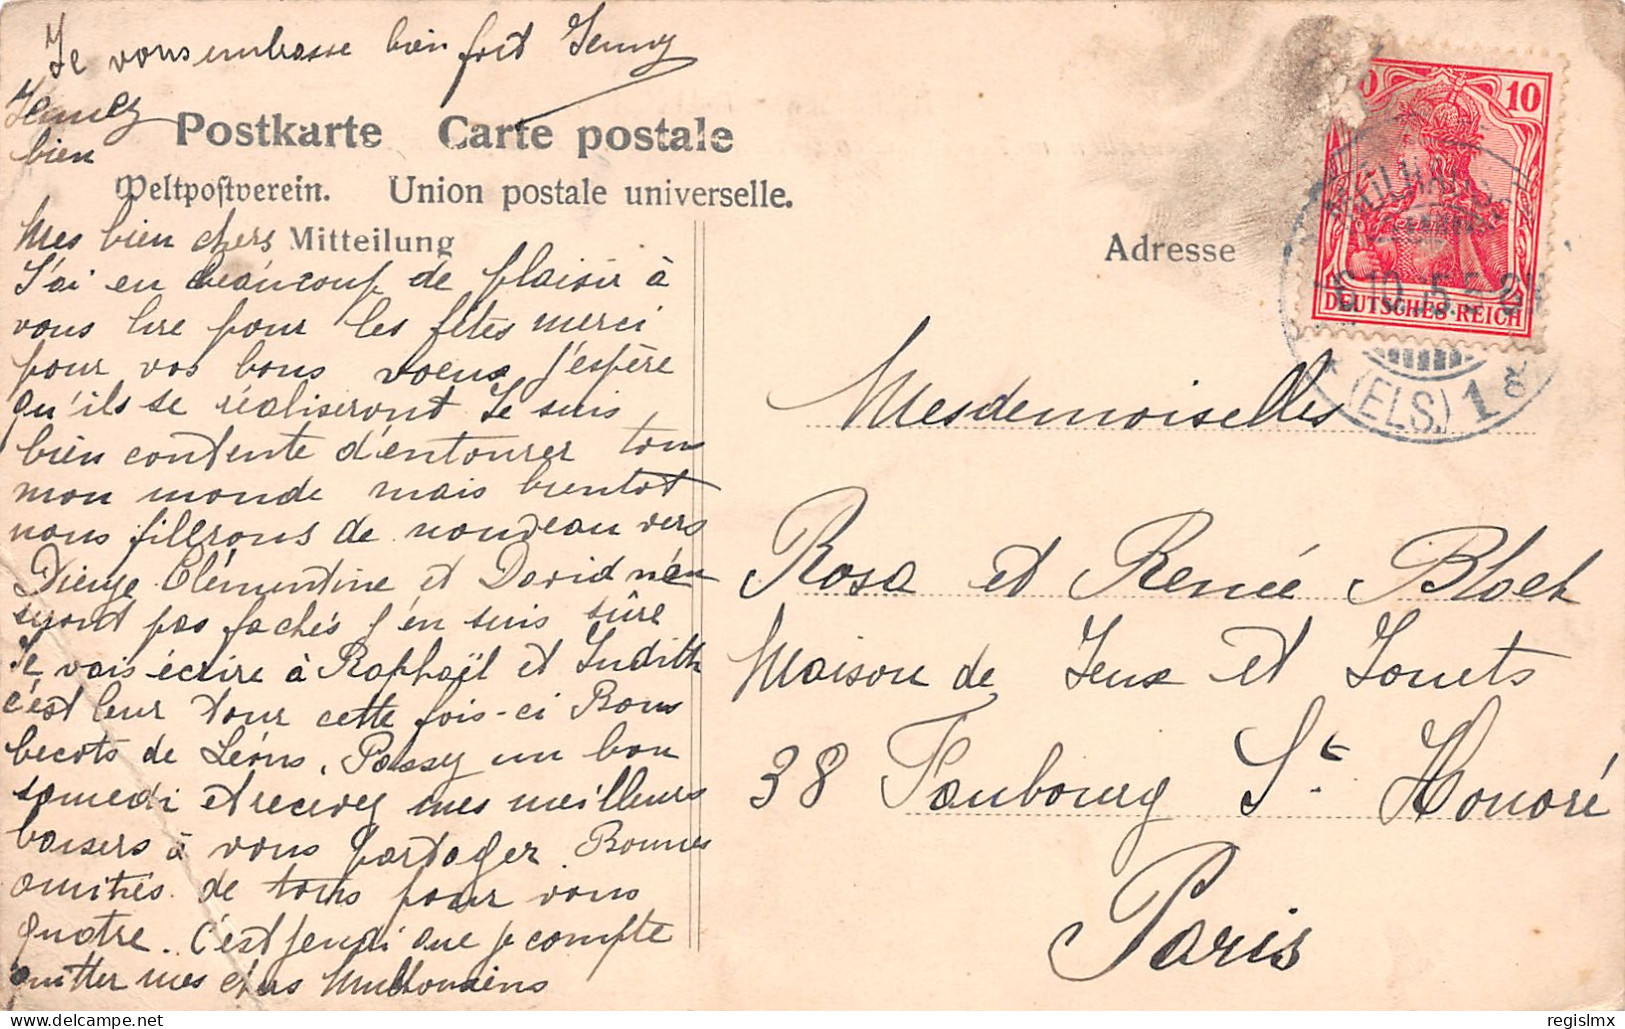 Je vous embrasse bien fort Jenny
bien
Postkarte Carte postale
Weltpostverein. Union postale universelle.
Mitteilung
Adresse
10
DEUTSCHES REICH
(ELS.) 1
Mes bien chers
J'ai eu beaucoup de plaisir à
vous lire pour les fêtes merci
pour vos bons voeux j'espère
qu'ils se réaliseront Je suis
bien contente d'entourer tou
mon monde mais bientot
nous filerons de nouveau vers
Dieuze Clémentine et David n'en
seront pas fachés j'en suis sûre
Je vais écrire à Raphaël et Judith
c'est leur tour cette fois-ci Bons
becots de Léons. Passez un bon
samedi et recevez mes meilleurs
baisers à vous partager Bonnes
amitiés de tous pour vous
quatre. C'est jeudi que je compte
quitter mes chers Mulhousiens
Mesdemoiselles
Rosa et Renée Bloch
Maison de Jeux et Jouets
38 Faubourg St. Honoré
Paris
regislmx
Delcampe.net